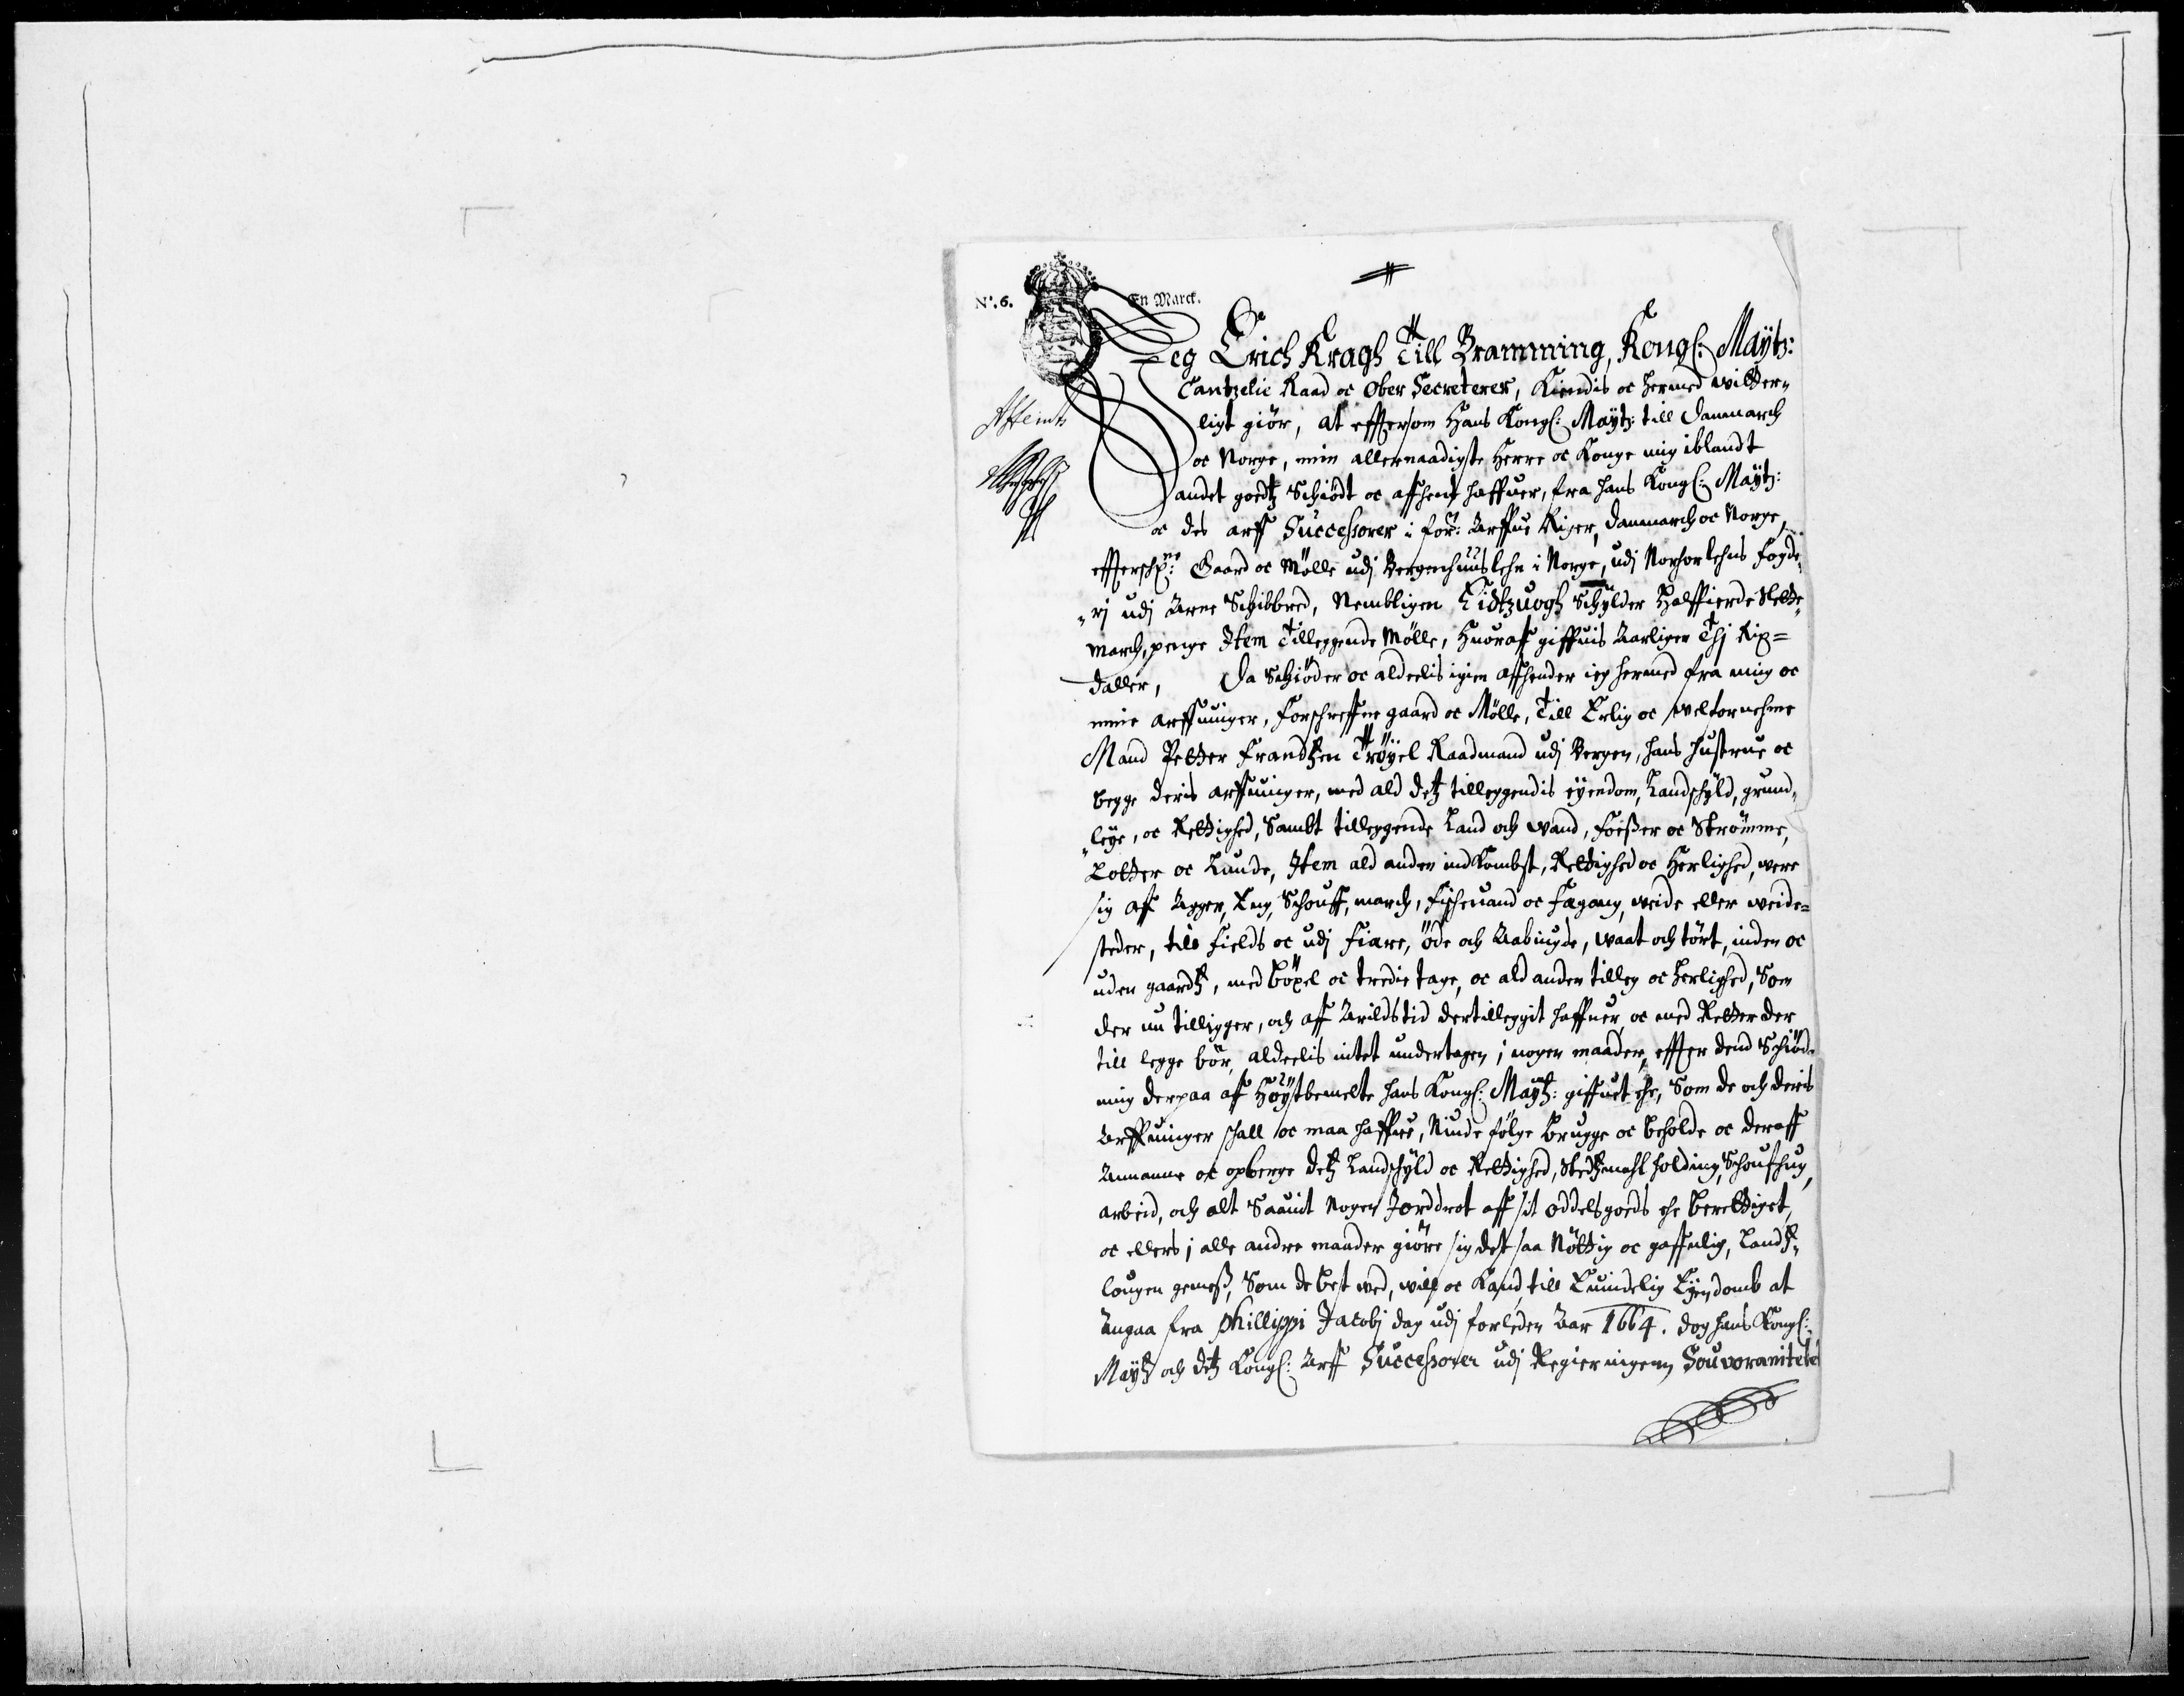 N:o 6.
En Marck.
Jeg Erich Kragh Till Bramming, Kongl: Maytz:
Cantzelie Raad oc Ober Secreterer, Kiendis oc hermed witter-
ligt giör, at effttersom Hans Kongl: Maytz: till Danmarch
oc Norge, min allernaadigste Herre oc Konge mig iblandt
andet goedtz Schiödt oc affhent haffuer, fra hans Kongl: Maytz:
oc des arff Successorer i for: Arffue Riger, Danmarch oc Norge,
effterschr:ne Gaard oc Mölle udj Bergenhuuslehn i Norge, udj Norhorlehns fogde-
-rj udj Arne Schibbred, Nembligen Tidtzuogh Schylder Halffierde Slette
march, penge Item Tilleggende Mölle, Huoraff giffuis Aarligen Thj Rix=
daller, Da Schiöder oc aldeelis igien affhender ieg hermed fra mig oc
mine arffuinger, Forschreffne gaard oc Mölle, Till Erlig oc welfornehme
Mand Petter Frandtzen Tröyel Raadmand udj Bergen, hans hustrue oc
begge deris arffuinger, med ald detz tilleggendis eyendom, Landschyld, grund-
-leye, oc Rettighed, Sambt tilleggende Land och wand, Foesser oc Strömme,
Lotter oc Lunde, Item ald anden indkombst, Rettighed oc Herlighed, were
sig aff Agger, Eng, Schouff, march, Fischeuand oc Fægang, weide eller weide=
steder, till Fields oc udj Fiære, öde och Aabiugde, waat och tört, inden oc
uden gaardtz, med böxel oc tredie tage, oc ald anden tilleg oc herlighed, Som
der nu tilligger, och aff Arildstid dertilleggit haffuer, oc med Retter der
till legge bör, aldeelis intet undertagen, i nogen maader, effter dend Schiöde
mig derpaa aff Höystbemelte hans Kongl: Maytz: giffuet ehr, Som de och deris
Arffuinger schall oc maa haffue, Niude fölge brugge oc beholde oc deraff
Annamme oc opberge detz Landschyld oc Rettighed, Stedtzmahl holding, Schoufhug,
arbeid, och alt Saauit Nogen Jorddrot aff sit oddelsgoeds ehr berettiget,
oc ellers i alle andre maader giöre sig det saa Nöttig oc gaffnlig, Landtz-
lougen gemess, Som de best wed, will oc Kand, till Euindelig Eyendomb at
Angaa fra Phillippi Jacobj dag udj forleden Aar 1664. Dog hans Kongl:
Maytz och detz Kongl: Arff Successorer udj Regieringenn, Souvoranitetè